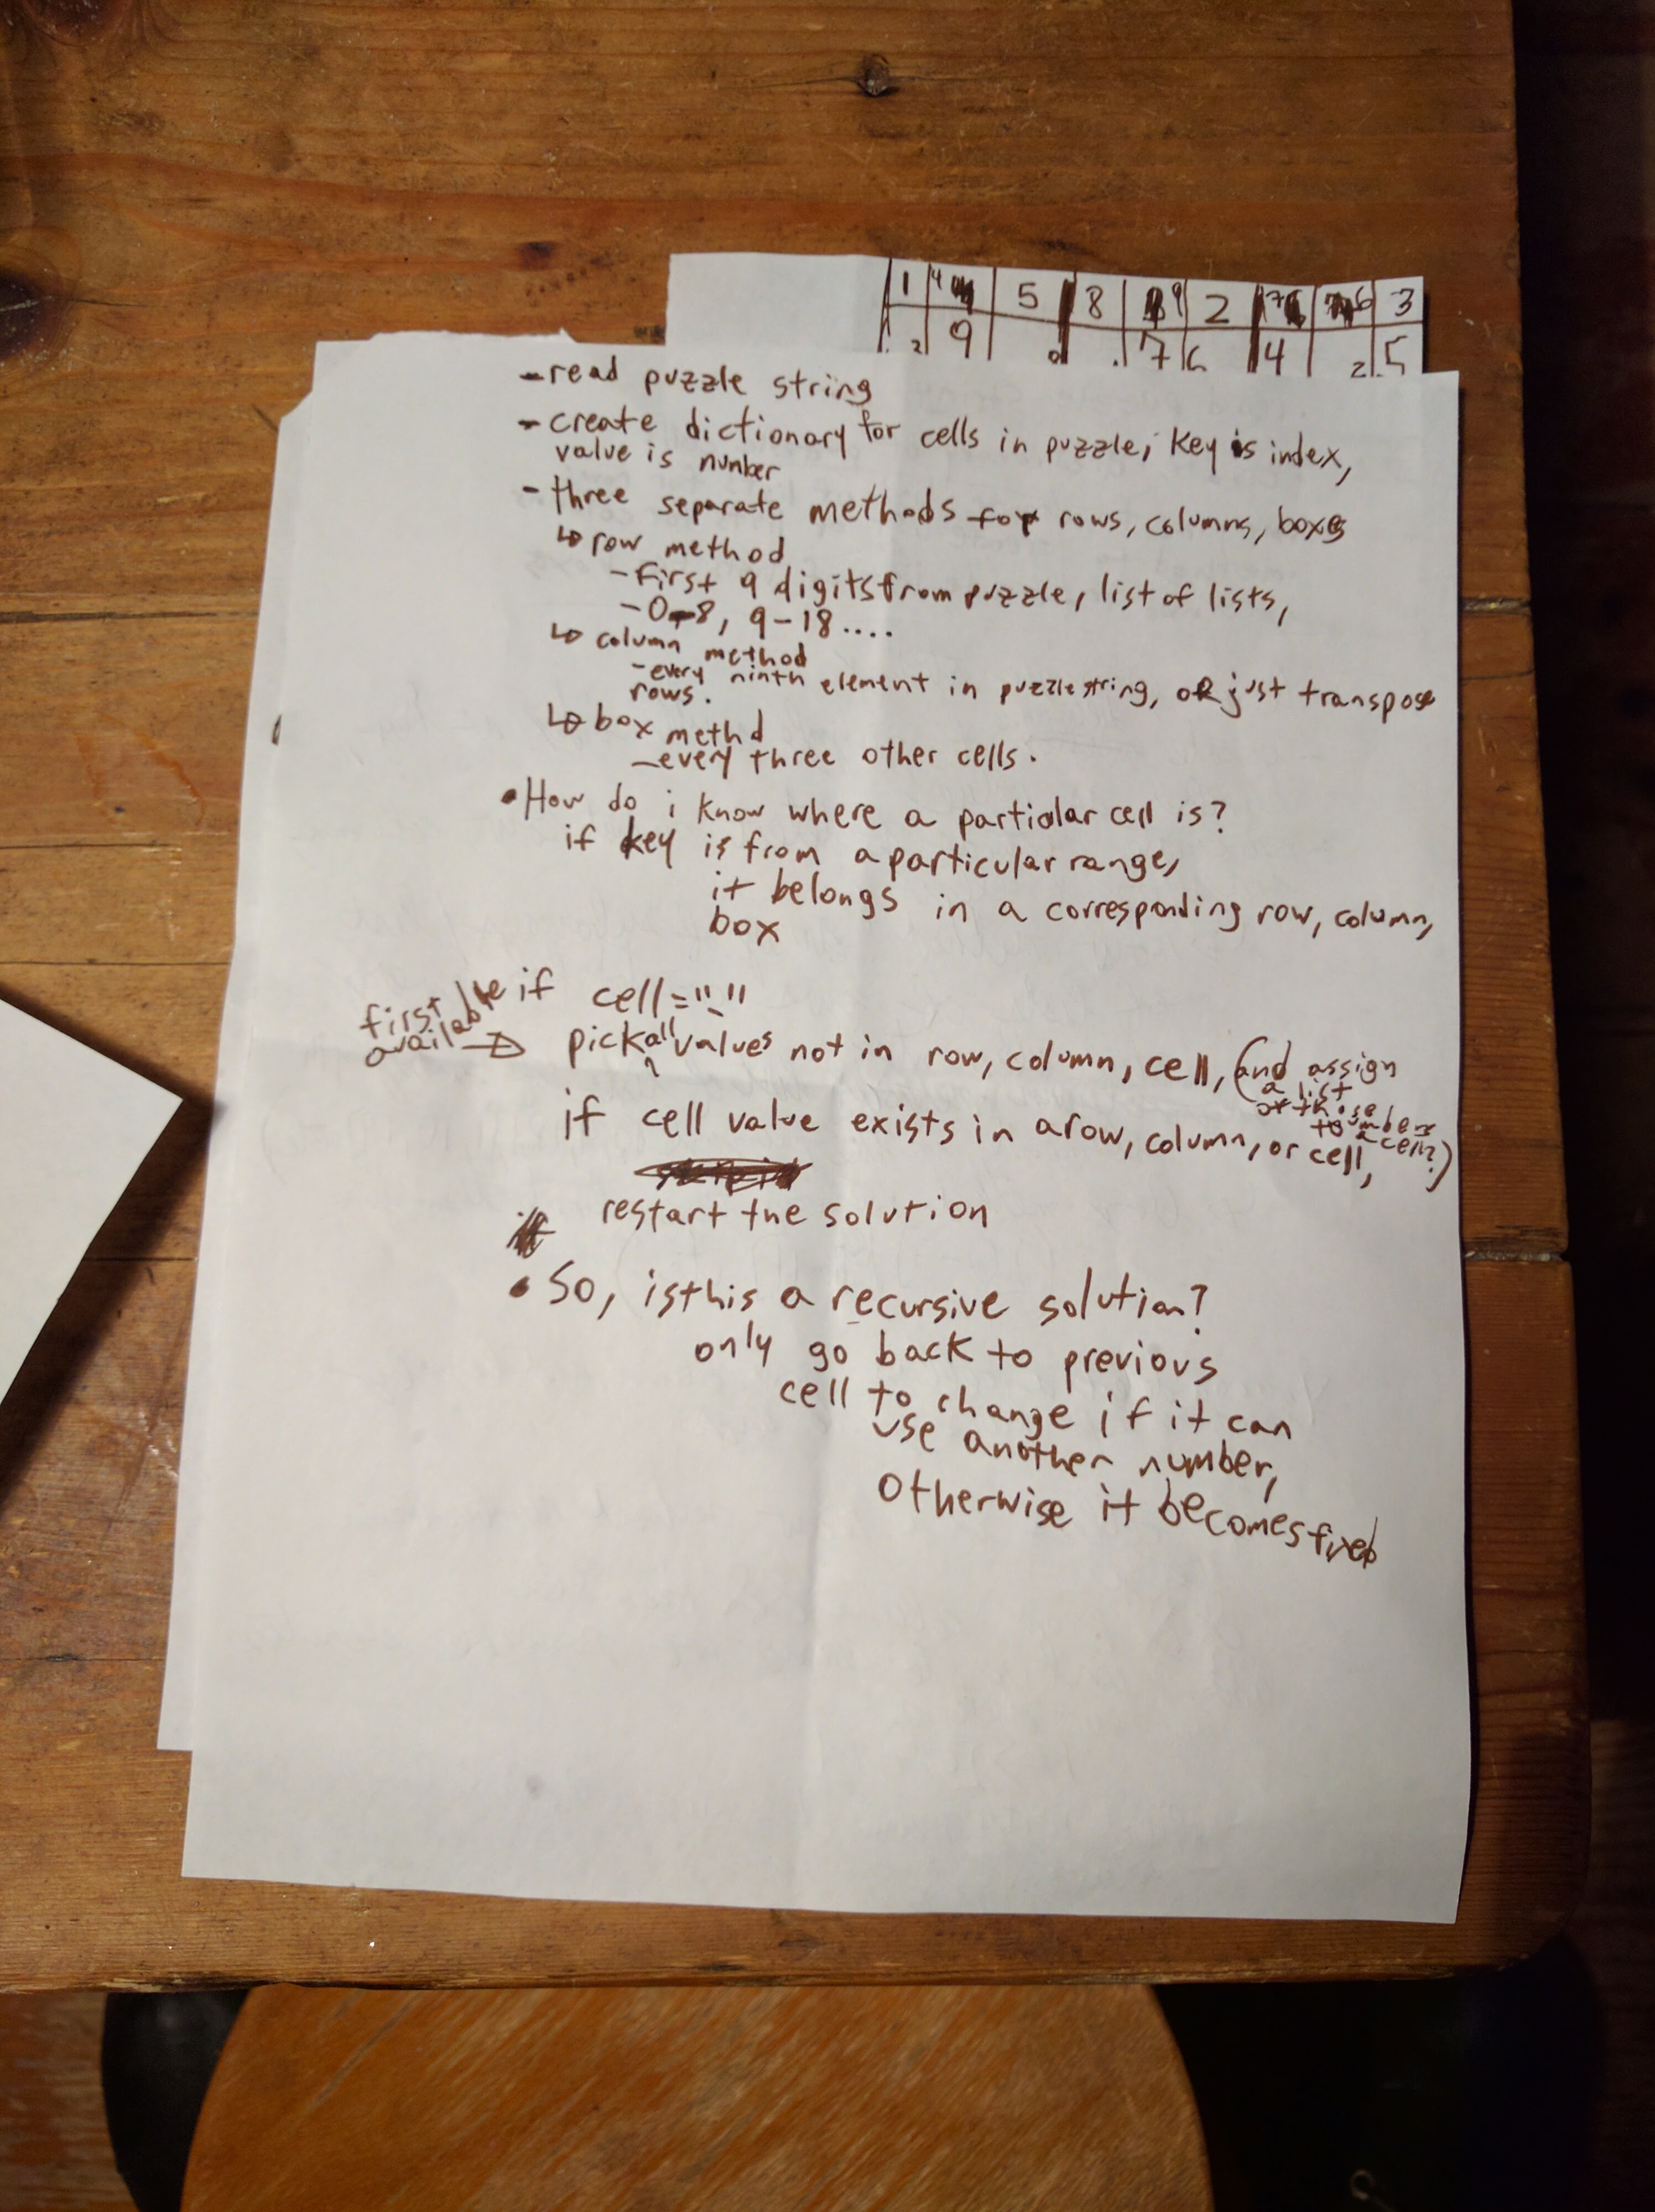 1 4 5 8 9 2 7 6 3
2 9 . 7 6 4 2 5
-read puzzle string
-create dictionary for cells in puzzle; key is index,
value is number
-three separate methods for rows, columns, boxes
↳ row method
-First 9 digits from puzzle, list of lists,
-0-8, 9-18....
↳ column method
-every ninth element in puzzle string, or just transpose
rows.
↳ box methd
-every three other cells.
•How do i know where a particular cell is?
if key is from a particular range,
it belongs in a corresponding row, column,
box
first
available →
if cell="-"
pick all values not in row, column, cell, (and assign
a list
of those
numbers
to a cell?)
if cell value exists in a row, column, or cell,
restart the solution
• So, is this a recursive solution?
only go back to previous
cell to change if it can
use another number,
otherwise it becomes fixed